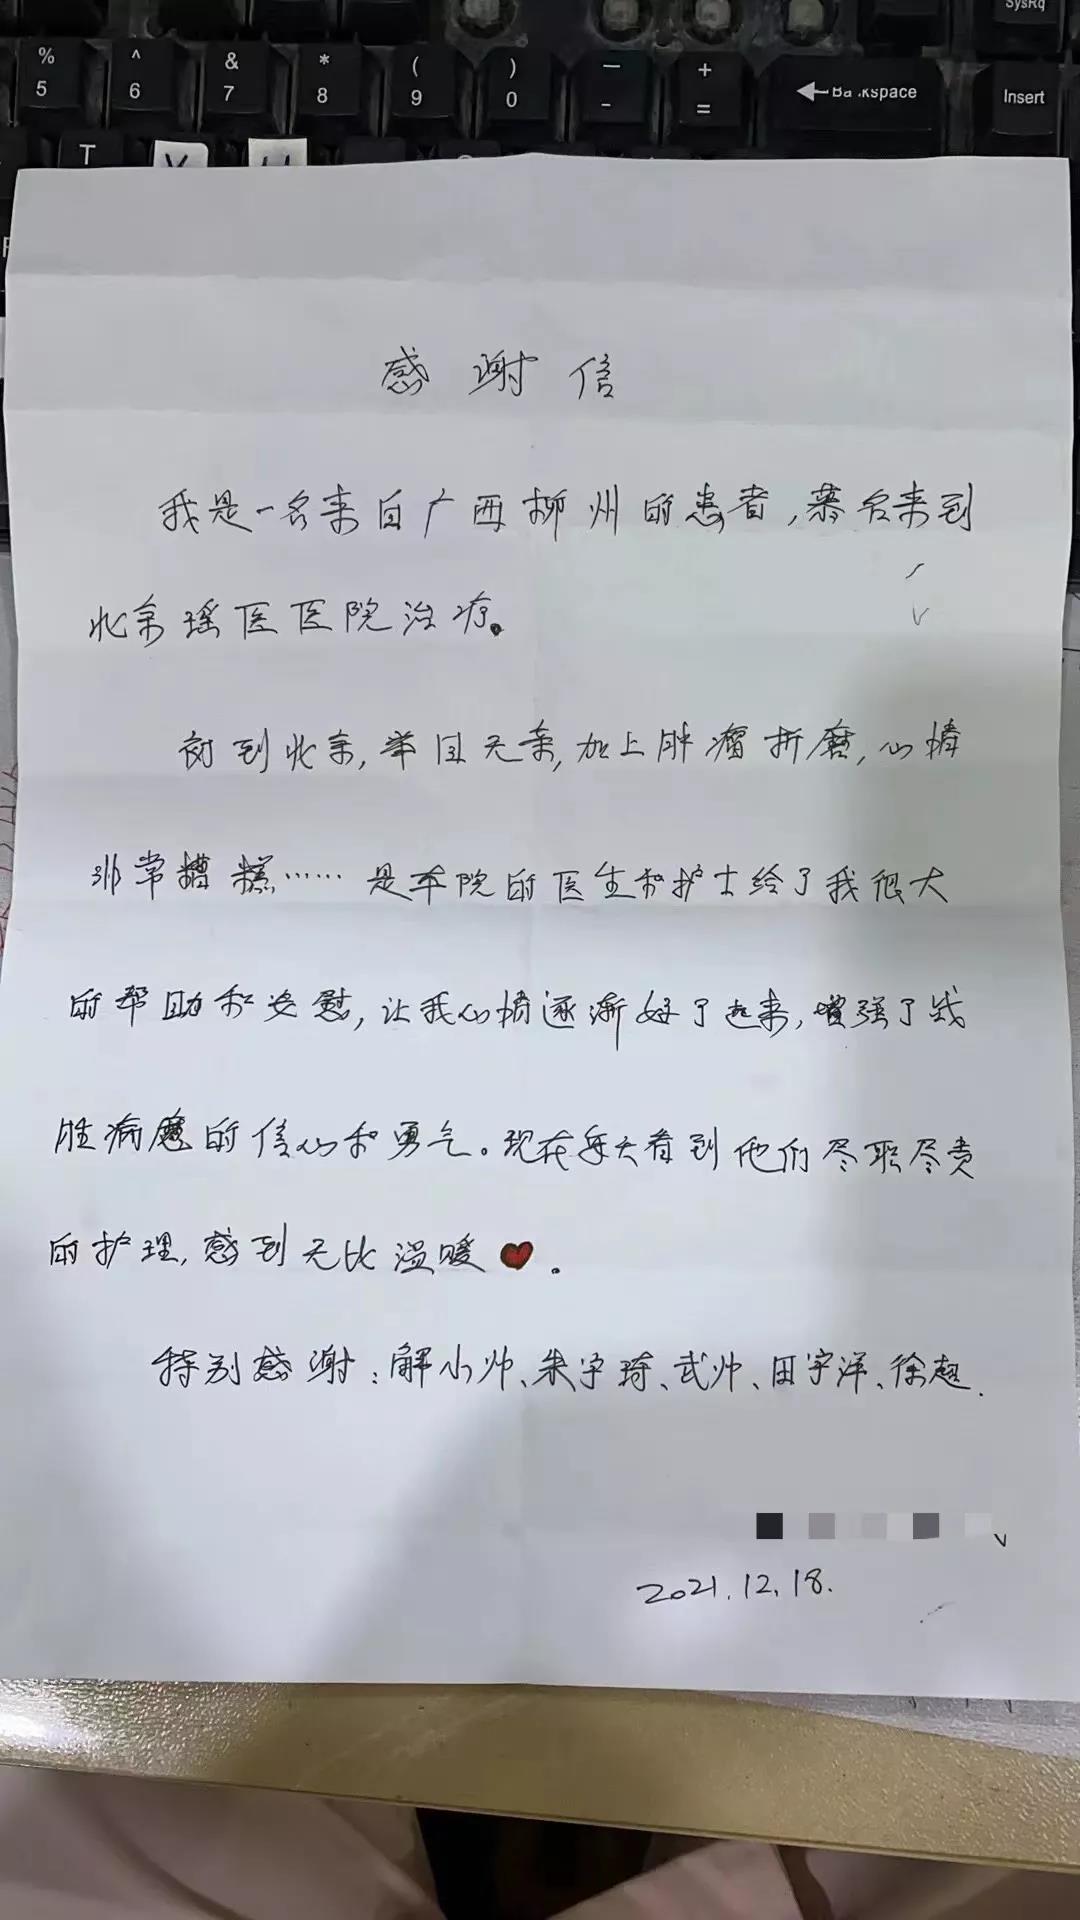 SysRq
% ^ & * ( ) — +
5 6 7 8 9 0 - = Backspace Insert
T Y U
感谢信
我是一名来自广西柳州的患者,慕名来到
北京瑶医医院治疗。
初到北京,举目无亲,加上肿瘤折磨,心情
非常糟糕……是本院的医生和护士给了我很大
的帮助和安慰,让我心情逐渐好了起来,增强了战
胜病魔的信心和勇气。现在每天看到他们尽职尽责
的护理,感到无比温暖❤.
特别感谢:解小帅、朱宇琦、武帅、田宇洋、徐超.
2021.12.18.